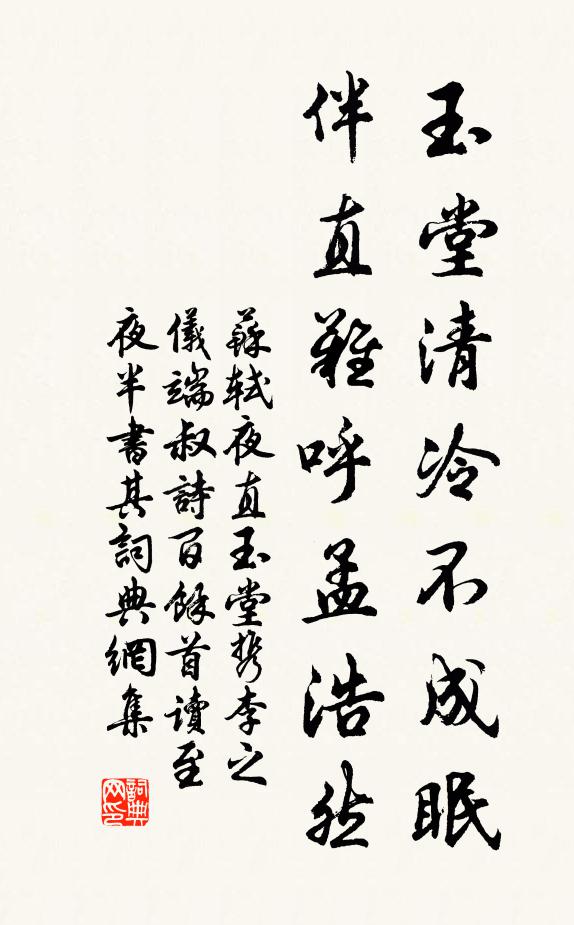 玉堂清冷不成眠
伴直難呼孟浩然
蘇軾夜直玉堂携李之
儀端叔詩百餘首讀至
夜半書其詞典網集
詞典网印